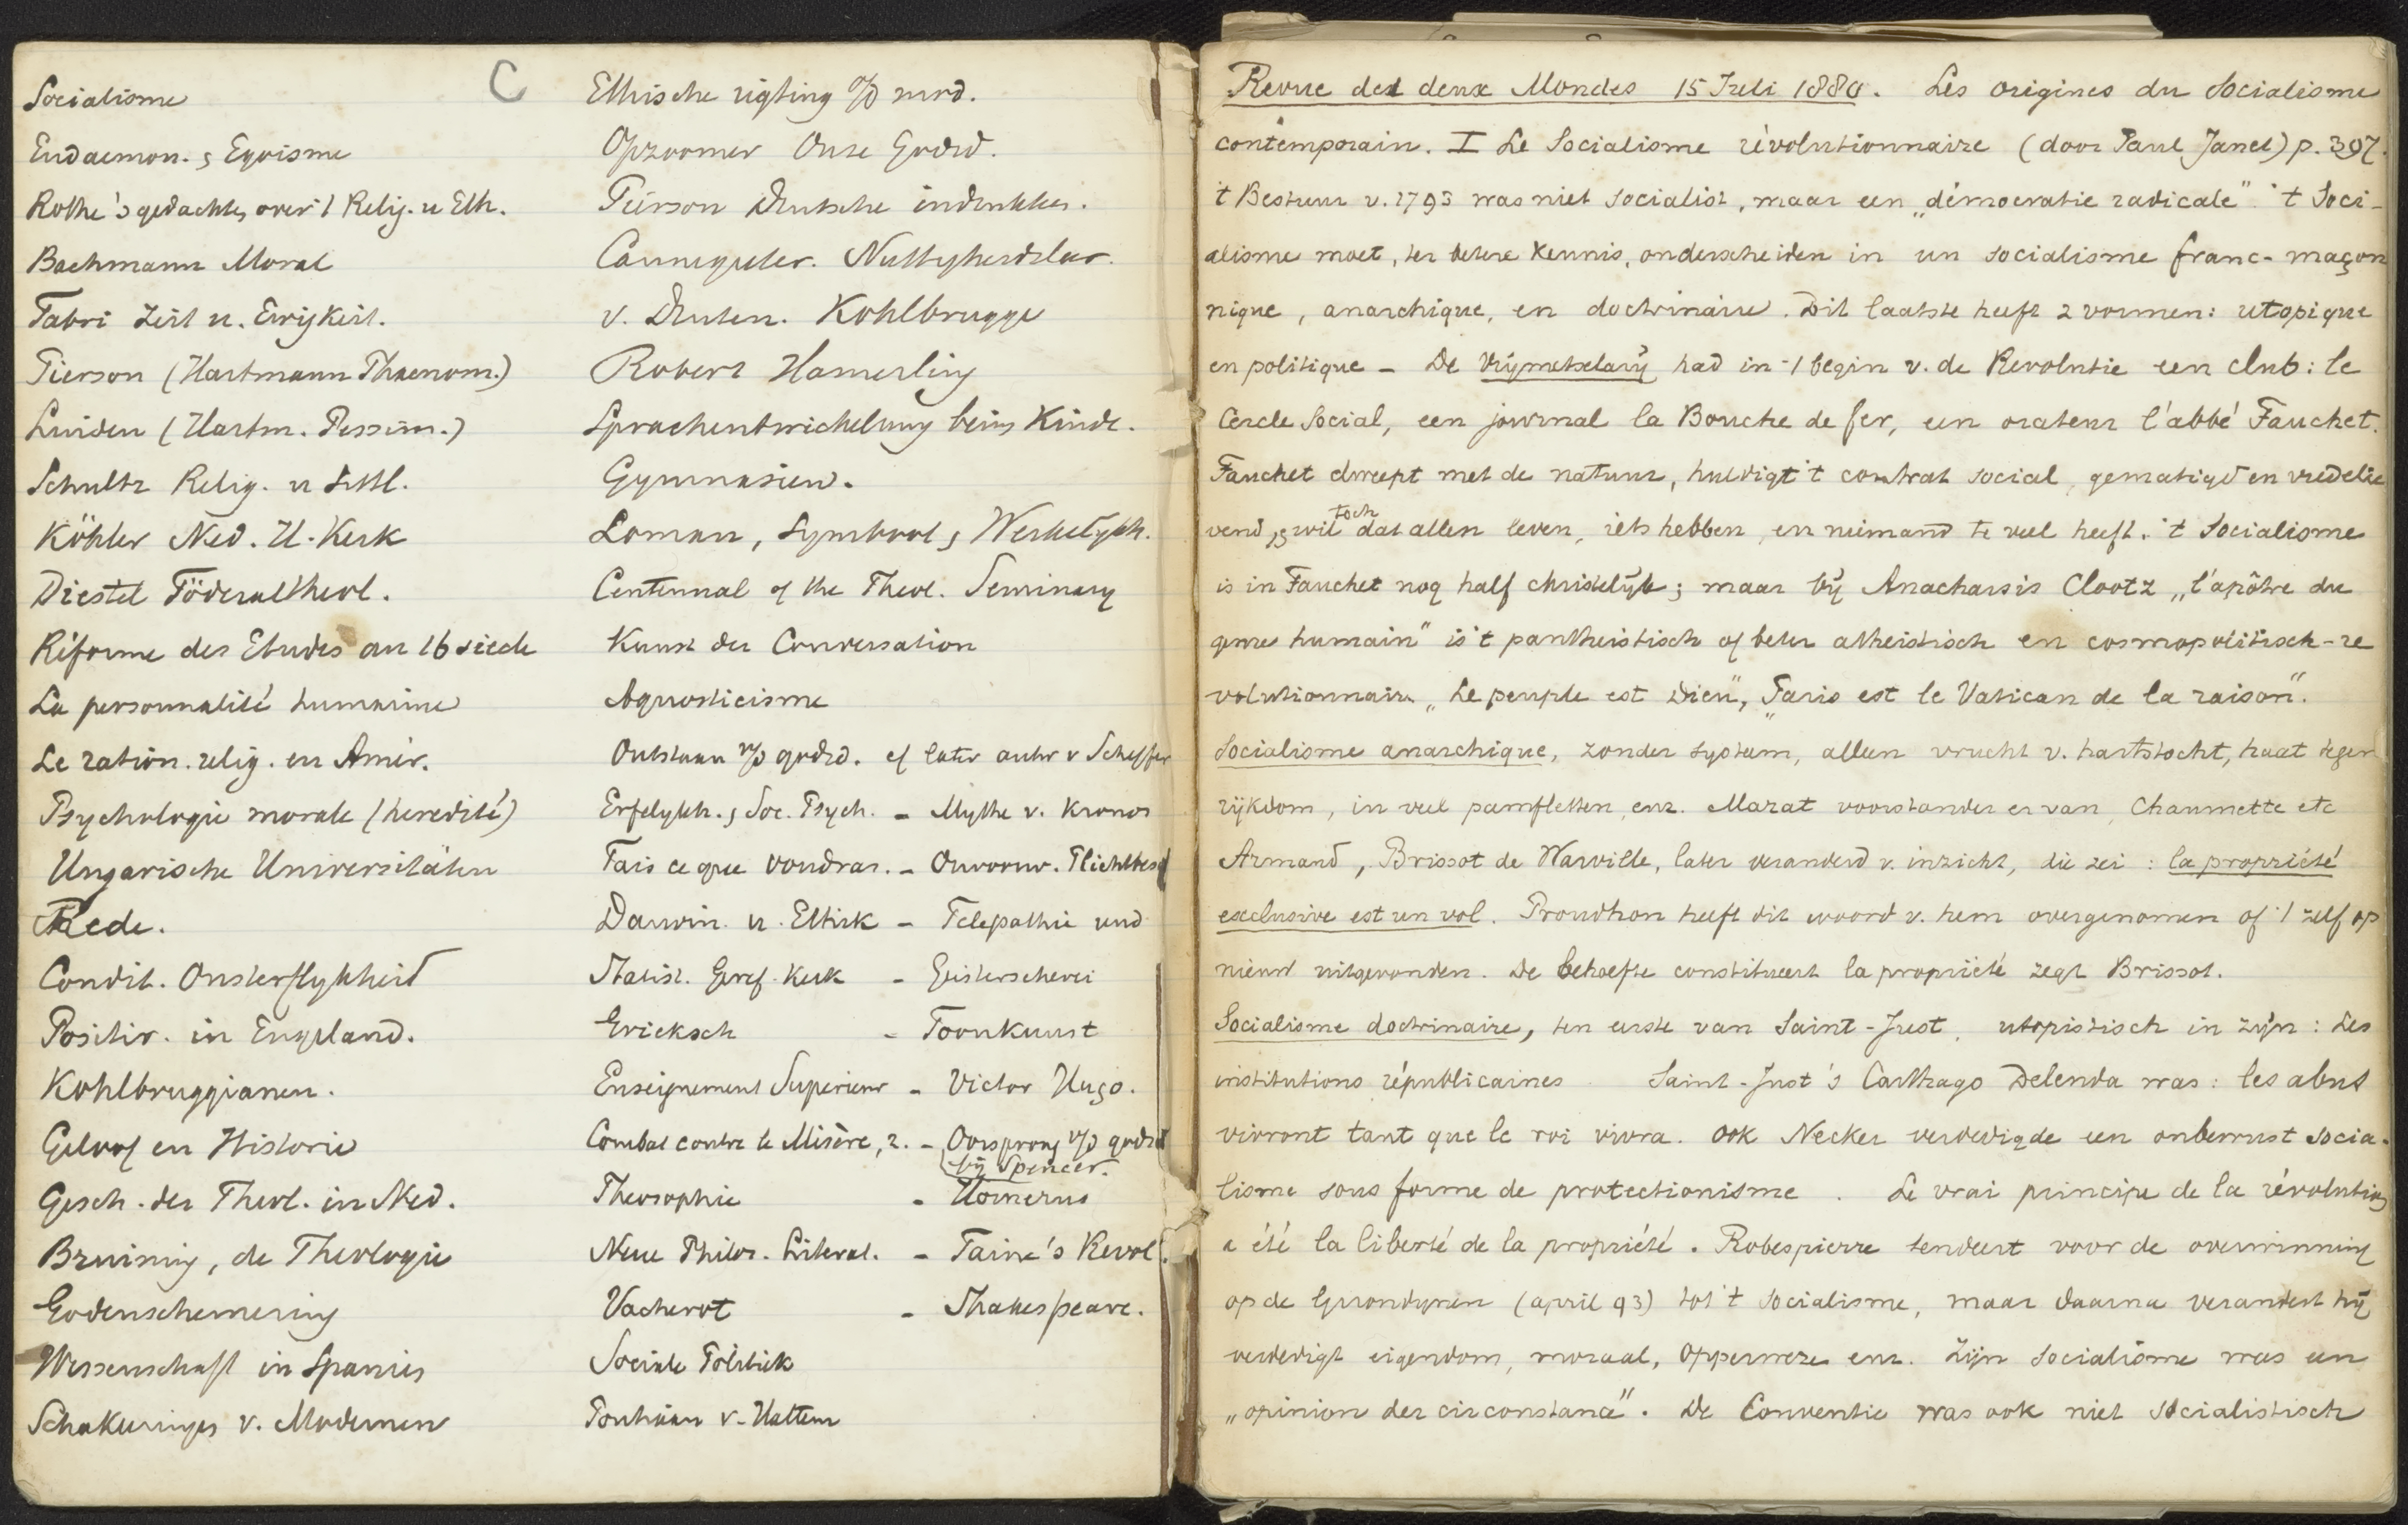 C
Socialisme
Eudaemon. & Egoisme
Rothe's gedachte, over 't Relig. u Eth.
Bachmann Moral
Fabri Zeit u. Ewigkeit.
Pierson (Hartmann Phaenom.)
(Hartm. Pessim.)
Schultz Relig. u Sittl.
Köhler Ned. H. Kerk
Diestel Föderaltheol.
Réforme des Etudes au 16 siècle
La personnalité humaine
Le ration. relig. en Amér.
Psychologie morale (heredité)
Ungarische Universitäten
Rede.
Condit. Onsterflykheid
Positiv. in Engeland.
Kohlbruggianen.
Geloof en Historie
Gesch. der Theol. in Ned.
Bruining, de Theologie
Godenschemering
Wissenschaft in Spanien
Schakeringen v. Modernen
Ethische rigting o/d
Opzoomer Onze Godsd.
Pierson Deutsche indrukken.
Cannegieter. Nuttigheidsleer.
v. Druten. Kohlbrugge
Robert Hamerling
Sprachentwickelung beim Kinde.
Gymnasien.
Loman, Symbool & Werkelijkh.
Centennal of the Theol. Seminary
Kunst der Conversation
Agnosticisme
Ontstaan v/d godsd. of later ander v Scheffer
Erfelykh. & Soc. Psych. - Mythe v. Kronos
Fais ce que voudras. - Onvoorw. Plichtbesef
Darwin. u. Ethik - Telepathie und
Statist. Geref. Kerk - Geisterseherei
Ericksch - Toonkunst
Enseignement Superieur - Victor Hugo.
Combat contre le Misère, 2. - Oorsprong v/d godsd
bij Spencer.
Theosophie - Homerus
Neue Philos. Literat. - Taine's Revol.
Vacherot - Shakespeare.
Sociale Politiek
v. Hattem
Revue des deux Mondes 15 Juli 1880. Les origines du Socialisme
contemporain. I Le Socialisme révolutionnaire (door Paul Janet) p. 397.
't Bestuur v. 1793 was niet socialist, maar een „démocratie radicale". 't Soci-
alisme moet, ter betere kennis, onderscheiden in un socialisme franc-maçon
nique, anarchique, en doctrinaire. Dit laatste heeft 2 vormen: utopique
en politique - De Vrijmetselarij had in 't begin v. de Revolutie een club: le
Cercle Social, een journal la Bouche de fer, een orateur l'abbé Fauchet.
Fauchet dweept met de natuur, huldigt 't contrat social, gematigd en vredelie
vend, & wil toch dat allen leven, iets hebben, en niemand te veel heeft. 't Socialisme
is in Fauchet nog half christelijk; maar bij Anacharsis Clootz „l'apôtre du
genre humain" is 't pantheistisch of beter atheistisch en cosmopolitisch-re
volutionnair. „Le peuple est Dieu", „Paris est le Vatican de la raison".
Socialisme anarchique, zonder systeem, alleen vrucht v. hartstocht, haat tegen
rijkdom, in veel pamfletten, enz. Marat voorstander er van, Chaumette etc
Armand, Brissot de Warville, later veranderd v. inzicht, die zei: la propriété
exclusive est un vol. Proudhon heeft dit woord v. hem overgenomen of 't zelf op
nieuw uitgevonden. De behoefte constitueert la propriété zegt Brissot.
Socialisme doctrinaire, ten eerste van Saint-Just, utopistisch in zijn: Les
institutions républicaines Saint-Just's Carthago Delenda was: les abus
vivront tant que le roi vivra. Ook Necker verdedigde een onbewust socia-
lisme sous forme de protectionisme. Le vrai principe de la révolution
a été la liberté de la propriété. Robespierre tendeert voor de overwinning
op de Girondijnen (april 93) tot 't socialisme, maar daarna verandert hij
verdedigt eigendom, moraal, Opperweze enz. Zijn Socialisme was een
„opinion de circonstance". De Conventie was ook niet socialistisch